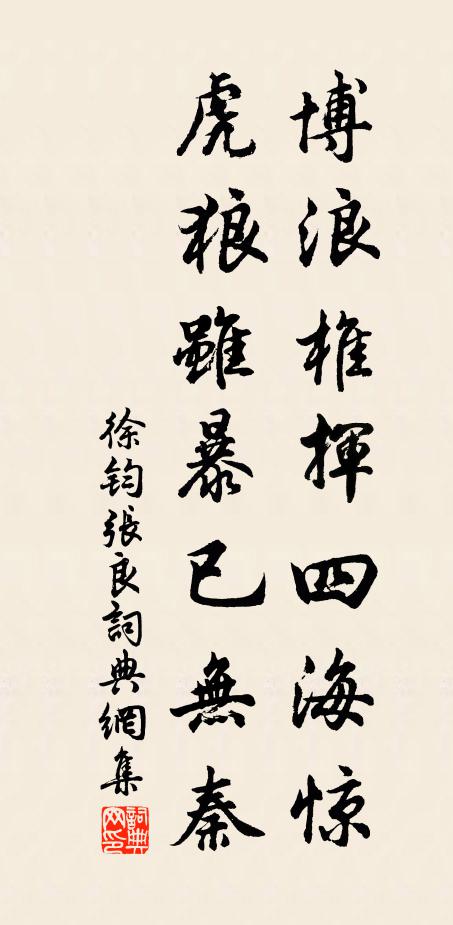 博浪椎揮四海惊
虎狼雖暴已無秦
徐鈞張良詞典網集
詞典网印